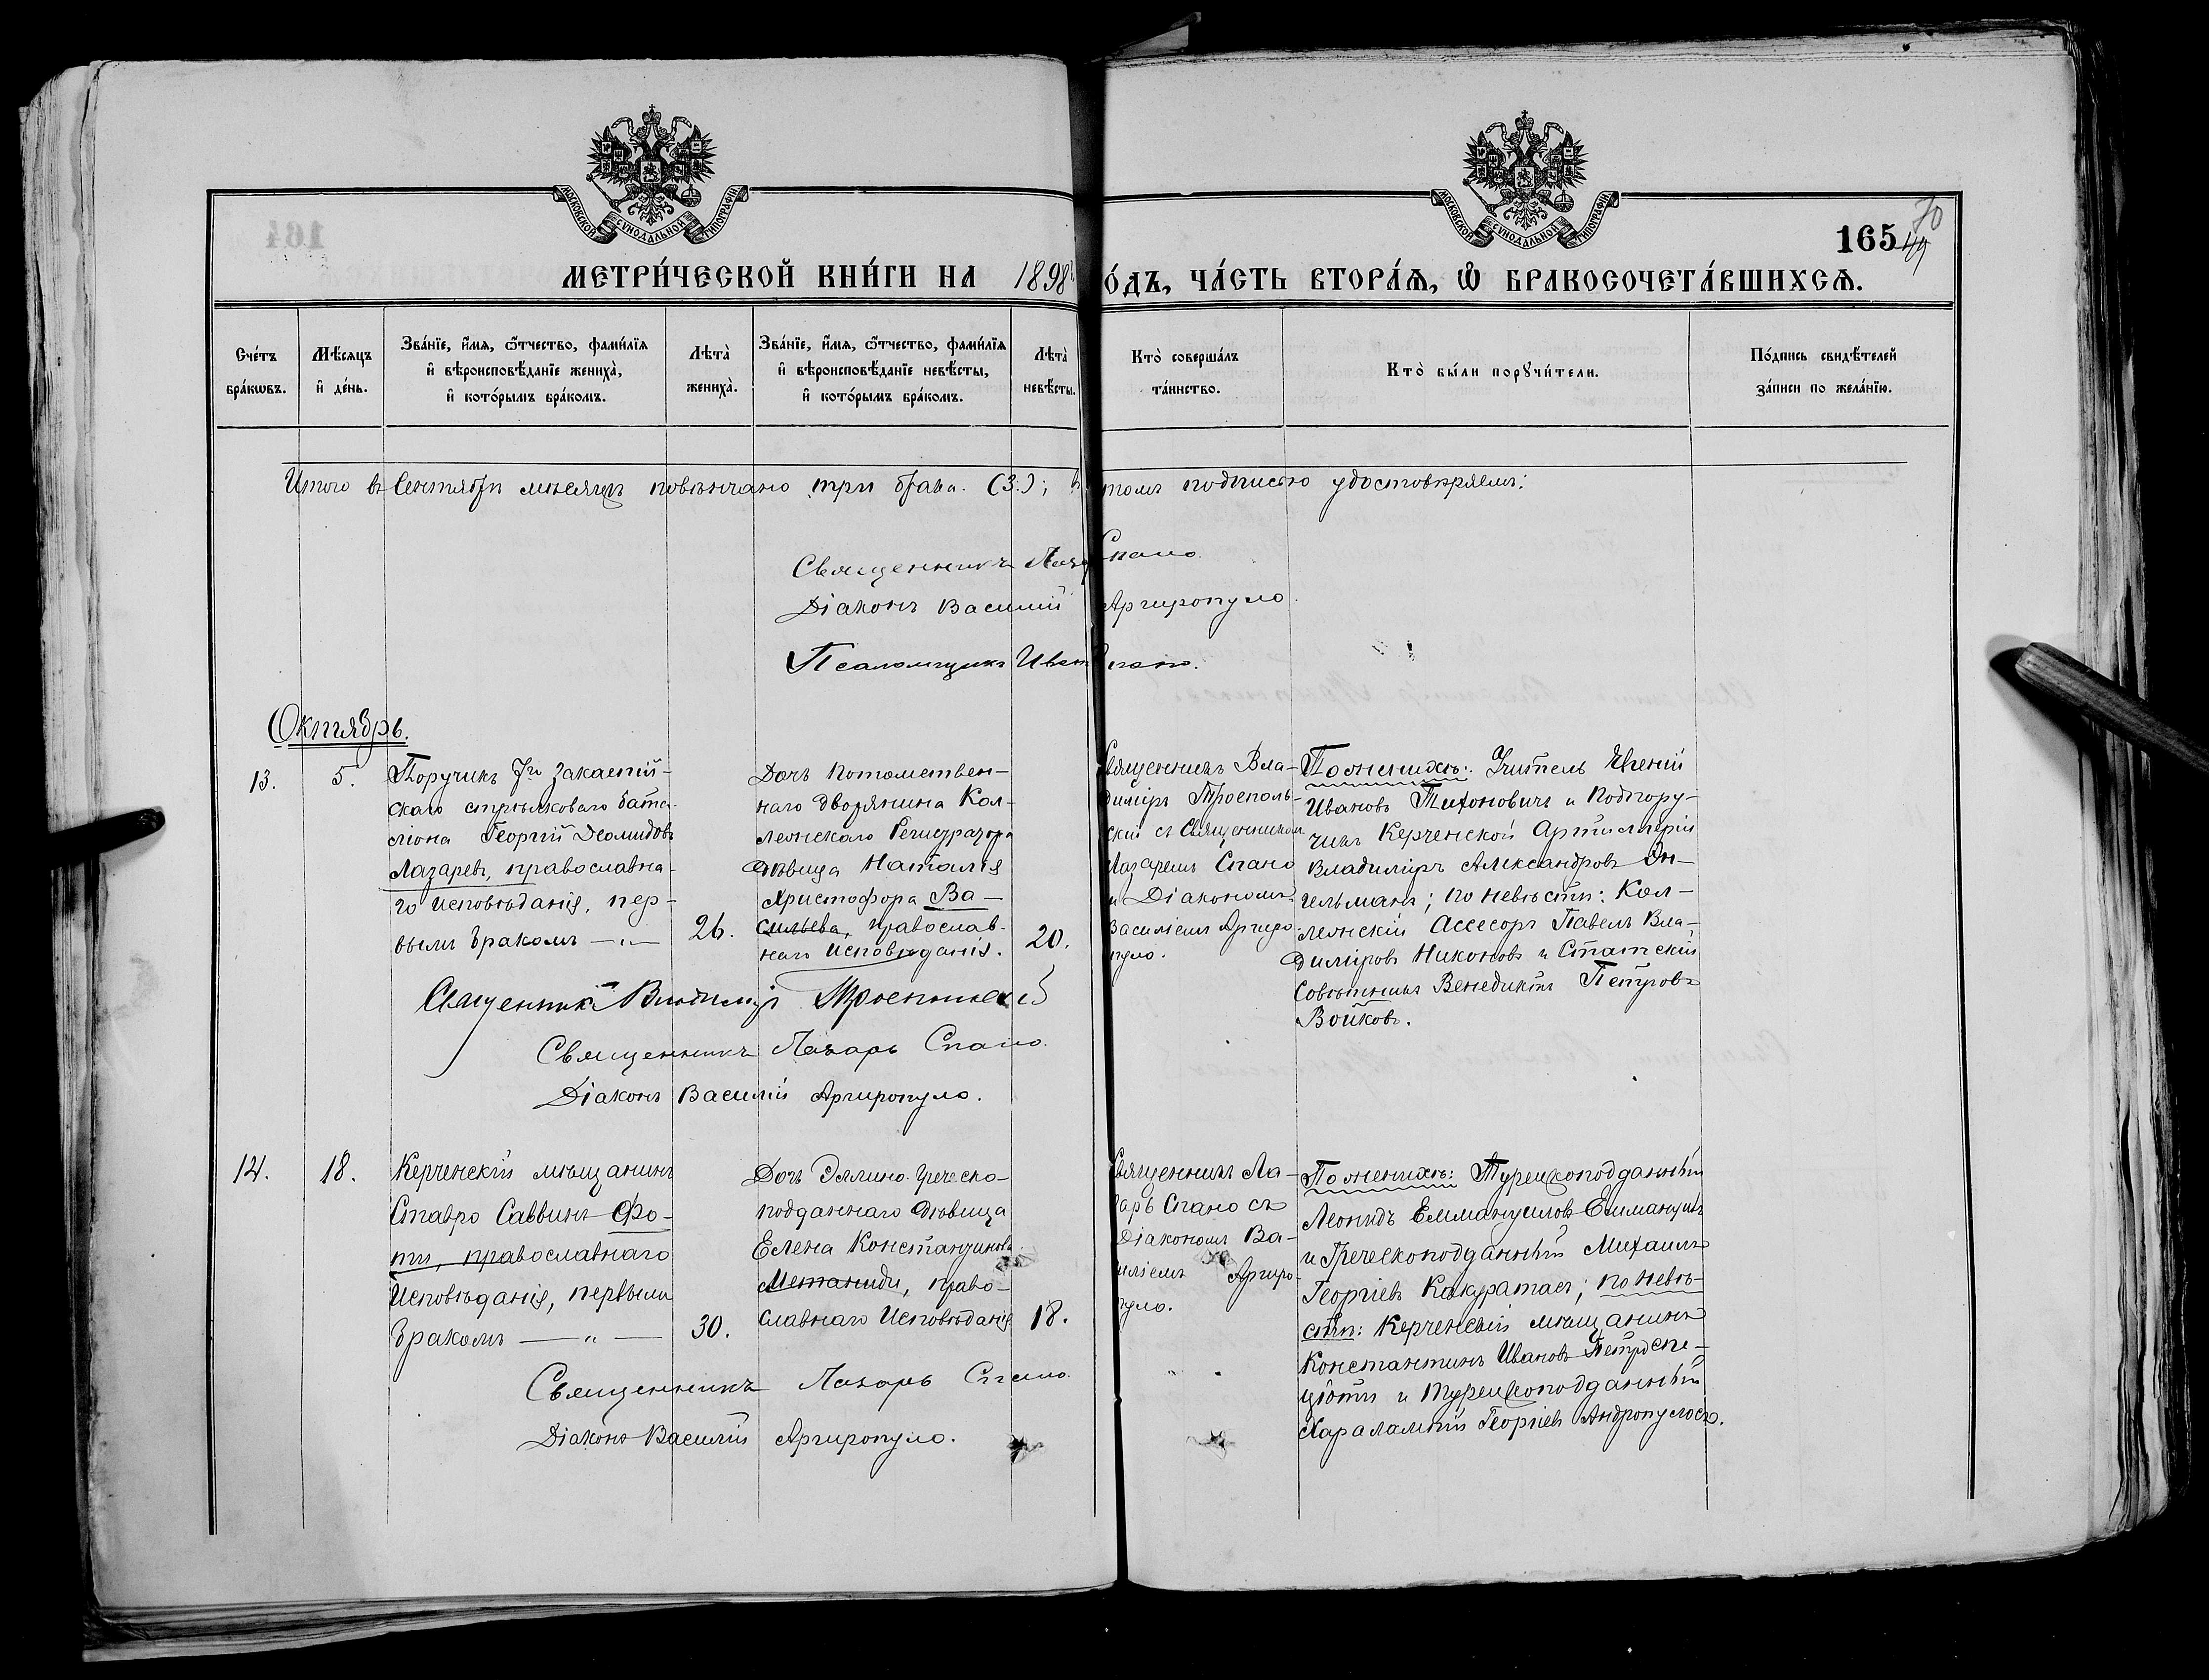 МОСКОВСКОЙ СѴНОДАЛЬНОЙ ТИПОГРАФІИ
МОСКОВСКОЙ СѴНОДАЛЬНОЙ ТИПОГРАФІИ
70
165 49
МЕТРИ́ЧЕСКОЙ КНИ́ГИ НА 1898 го́дъ, ЧА́СТЬ ВТОРА́Ѧ, Ѡ҆ БРАКОСОЧЕТА́ВШИХСѦ.
Сче́тъ бра́кѡвъ.
Мѣ́сѧцъ и҆ де́нь.
Зва́нїе, и҆́мѧ, ѻ҆́тчество, фами́лїѧ
и҆ вѣроисповѣ́данїе жениха̀,
и҆ кото́рымъ бра́комъ.
Лѣта̀ жениха̀.
Зва́нїе, и҆́мѧ, ѻ҆́тчество, фами́лїѧ
и҆ вѣроисповѣ́данїе невѣ́сты,
и҆ кото́рымъ бра́комъ.
Лѣта̀ невѣ́сты.
Кто̀ соверша́лъ та́инство.
Кто̀ бы́ли порꙋчи́тели.
По́дпись свидѣ́телей за́писи по жела́нїю.
Итого въ Сентябрѣ мѣсяцѣ повѣнчано три брака. (3.); въ томъ подписью удостовѣряемъ:
Священникъ Лазарь Спано.
Діаконъ Василій Аргиропуло.
Псаломщикъ Иванъ Спано.
Октябрь.
13.
5.
Поручикъ 7го Закаспій-
скаго стрѣлковаго бата-
ліона Георгій Деомидовъ
Лазаревъ, православна-
го исповѣданія, пер-
вымъ бракомъ — „ —
26.
Дочь потомствен-
наго дворянина Кол-
лежскаго Регистратора
дѣвица Наталія
Христофора Ва-
сильева, православ-
наго исповѣданія.
20.
Священникъ Вла-
диміръ Троеполь-
скій съ Священникомъ
Лазаремъ Спано
и Діакономъ
Василіемъ Аргиро-
пуло.
По женихѣ: Учитель Евгеній
Ивановъ Тихоновичъ и Подпору-
чикъ Керченской Артиллеріи
Владиміръ Александровъ Эн-
гельманъ; по невѣстѣ: Кол-
лежскій Ассесоръ Павелъ Вла-
диміровъ Никоновъ и Статскій
Совѣтникъ Венедиктъ Петровъ
Войковъ.
Священникъ Владиміръ Троепольскій
Священникъ Лазарь Спано.
Діаконъ Василій Аргиропуло.
14.
18.
Керченскій мѣщанинъ
Ставро Саввинъ Фо-
ти, православнаго
исповѣданія, первымъ
бракомъ — „ —
30.
Дочь Эллино-Греческо-
подданнаго дѣвица
Елена Константинова
Метаниди, право-
славнаго исповѣданія
18.
Священникъ Ла-
зарь Спано съ
Діакономъ Ва-
силіемъ Аргиро-
пуло.
По женихѣ: Турецкоподданный
Леонидъ Еммануиловъ Еммануилъ
и Греческоподданный Михаилъ
Георгіевъ Какуратас; по невѣ-
стѣ: Керченскій мѣщанинъ
Константинъ Ивановъ Петроспе-
ціоти и Турецкоподданный
Харалампій Георгіевъ Андропулосъ.
Священникъ Лазарь Спано.
Діаконъ Василій Аргиропуло.